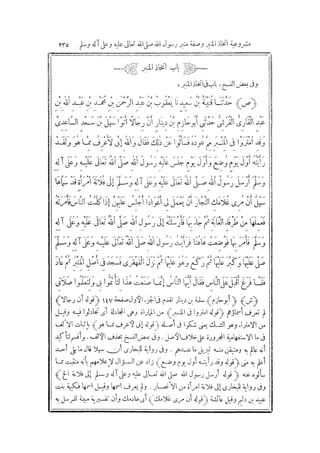 مشروعية اتخاذ المنبر وصفة منبر رسول الله صلى الله تعالى عليه وعلى آله وسلم ٢٣٥
باب اتخاذ المنبر
وفى بعض النسخ، باب فى اتخاذ المنبر،
(ص) حَدَّثَنَا قُتَيْبَةُ بْنُ سَعِيدٍ نَا يَعْقُوبُ بْنُ عَبْدِ الرَّحْمَنِ بْنِ مُحَمَّدِ بْنِ عَبْدِ اللهِ بْنِ
عَبْدٍ الْقَارِىُّ الْقُرَشِىُّ حَدَّثَنِى أَبُو حَازِمِ بْنُ دِينَارٍ أَنَّ رِجَالًا أَتَوْا سَهْلَ بْنَ سَعْدٍ السَّاعِدِىَّ
وَقَدِ امْتَرَوْا فِى الْمِنْبَرِ مِمَّ عُودُهُ فَسَأَلُوهُ عَنْ ذَلِكَ فَقَالَ وَاللهِ إِنِّى لَأَعْرِفُ مِمَّا هُوَ وَلَقَدْ
رَأَيْتُهُ أَوَّلَ يَوْمٍ وُضِعَ وَأَوَّلَ يَوْمٍ جَلَسَ عَلَيْهِ رَسُولُ اللهِ صَلَّى اللهُ تَعَالَى عَلَيْهِ وَعَلَى آلِهِ
وَسَلَّمَ أَرْسَلَ رَسُولُ اللهِ صَلَّى اللهُ تَعَالَى عَلَيْهِ وَعَلَى آلِهِ وَسَلَّمَ إِلَى فُلَانَةَ امْرَأَةٍ قَدْ سَمَّاهَا
سَهْلٌ أَنْ مُرِى غُلَامَكِ النَّجَّارَ أَنْ يَعْمَلَ لِى أَعْوَادًا أَجْلِسُ عَلَيْهِنَّ إِذَا كَلَّمْتُ النَّاسَ فَأَمَرَتْهُ
فَعَمِلَهَا مِنْ طَرْفَاءِ الْغَابَةِ ثُمَّ جَاءَ بِهَا فَأَرْسَلَتْهُ إِلَى رَسُولِ اللهِ صَلَّى اللهُ تَعَالَى عَلَيْهِ وَعَلَى آلِهِ
وَسَلَّمَ فَأَمَرَ بِهَا فَوُضِعَتْ هَاهُنَا فَرَأَيْتُ رَسُولَ اللهِ صَلَّى اللهُ تَعَالَى عَلَيْهِ وَعَلَى آلِهِ وَسَلَّمَ
صَلَّى عَلَيْهَا وَكَبَّرَ عَلَيْهَا ثُمَّ رَكَعَ وَهُوَ عَلَيْهَا ثُمَّ نَزَلَ الْقَهْقَرَى فَسَجَدَ فِى أَصْلِ الْمِنْبَرِ ثُمَّ عَادَ
فَلَمَّا فَرَغَ أَقْبَلَ عَلَى النَّاسِ فَقَالَ أَيُّهَا النَّاسُ إِنَّمَا صَنَعْتُ هَذَا لِتَأْتَمُّوا بِى وَلِتَعَلَّمُوا صَلَاتِى
(ش) (أبو حازم) سلمة بن دينار تقدم فى الجزء الأول صفحة ١٤٧ (قوله أن رجالا)
لم تعرف أسماؤهم (قوله امتروا فى المنبر) من المماراة وهى المجادلة أى تجادلوا فيه وقيل
من الامتراء وهو الشك يعنى شكوا فى أصله (قوله إنى لأعرف مما هو) بإثبات الألف
فى ما الاستفهامية المجرورة على خلاف الأصل. وفى بعض النسخ بحذف الألف. وأقسم تأكيد
أنه عالم به ومتيقن منه لينزل ما عندهم. وفى رواية للبخارى أن سهلا قال ما بقى أحد
أعلم به منى (قوله وقد رأيته أول يوم وضع) زاد عن السؤال لإعلامهم بأنه متثبت مما
سألوه عنه (قوله أرسل رسول الله صلى الله تعالى عليه وعلى آله وسلم إلى فلانة الخ)
وفى رواية للبخارى إلى فلانة امرأة من الأنصار. ولم يعرف اسمها وقيل اسمها فكيهة بنت
عبيد بن دليم وقيل عائشة (قوله أن مرى غلامك) أى عبدك وأن تفسيرية مبينة للمرسل به